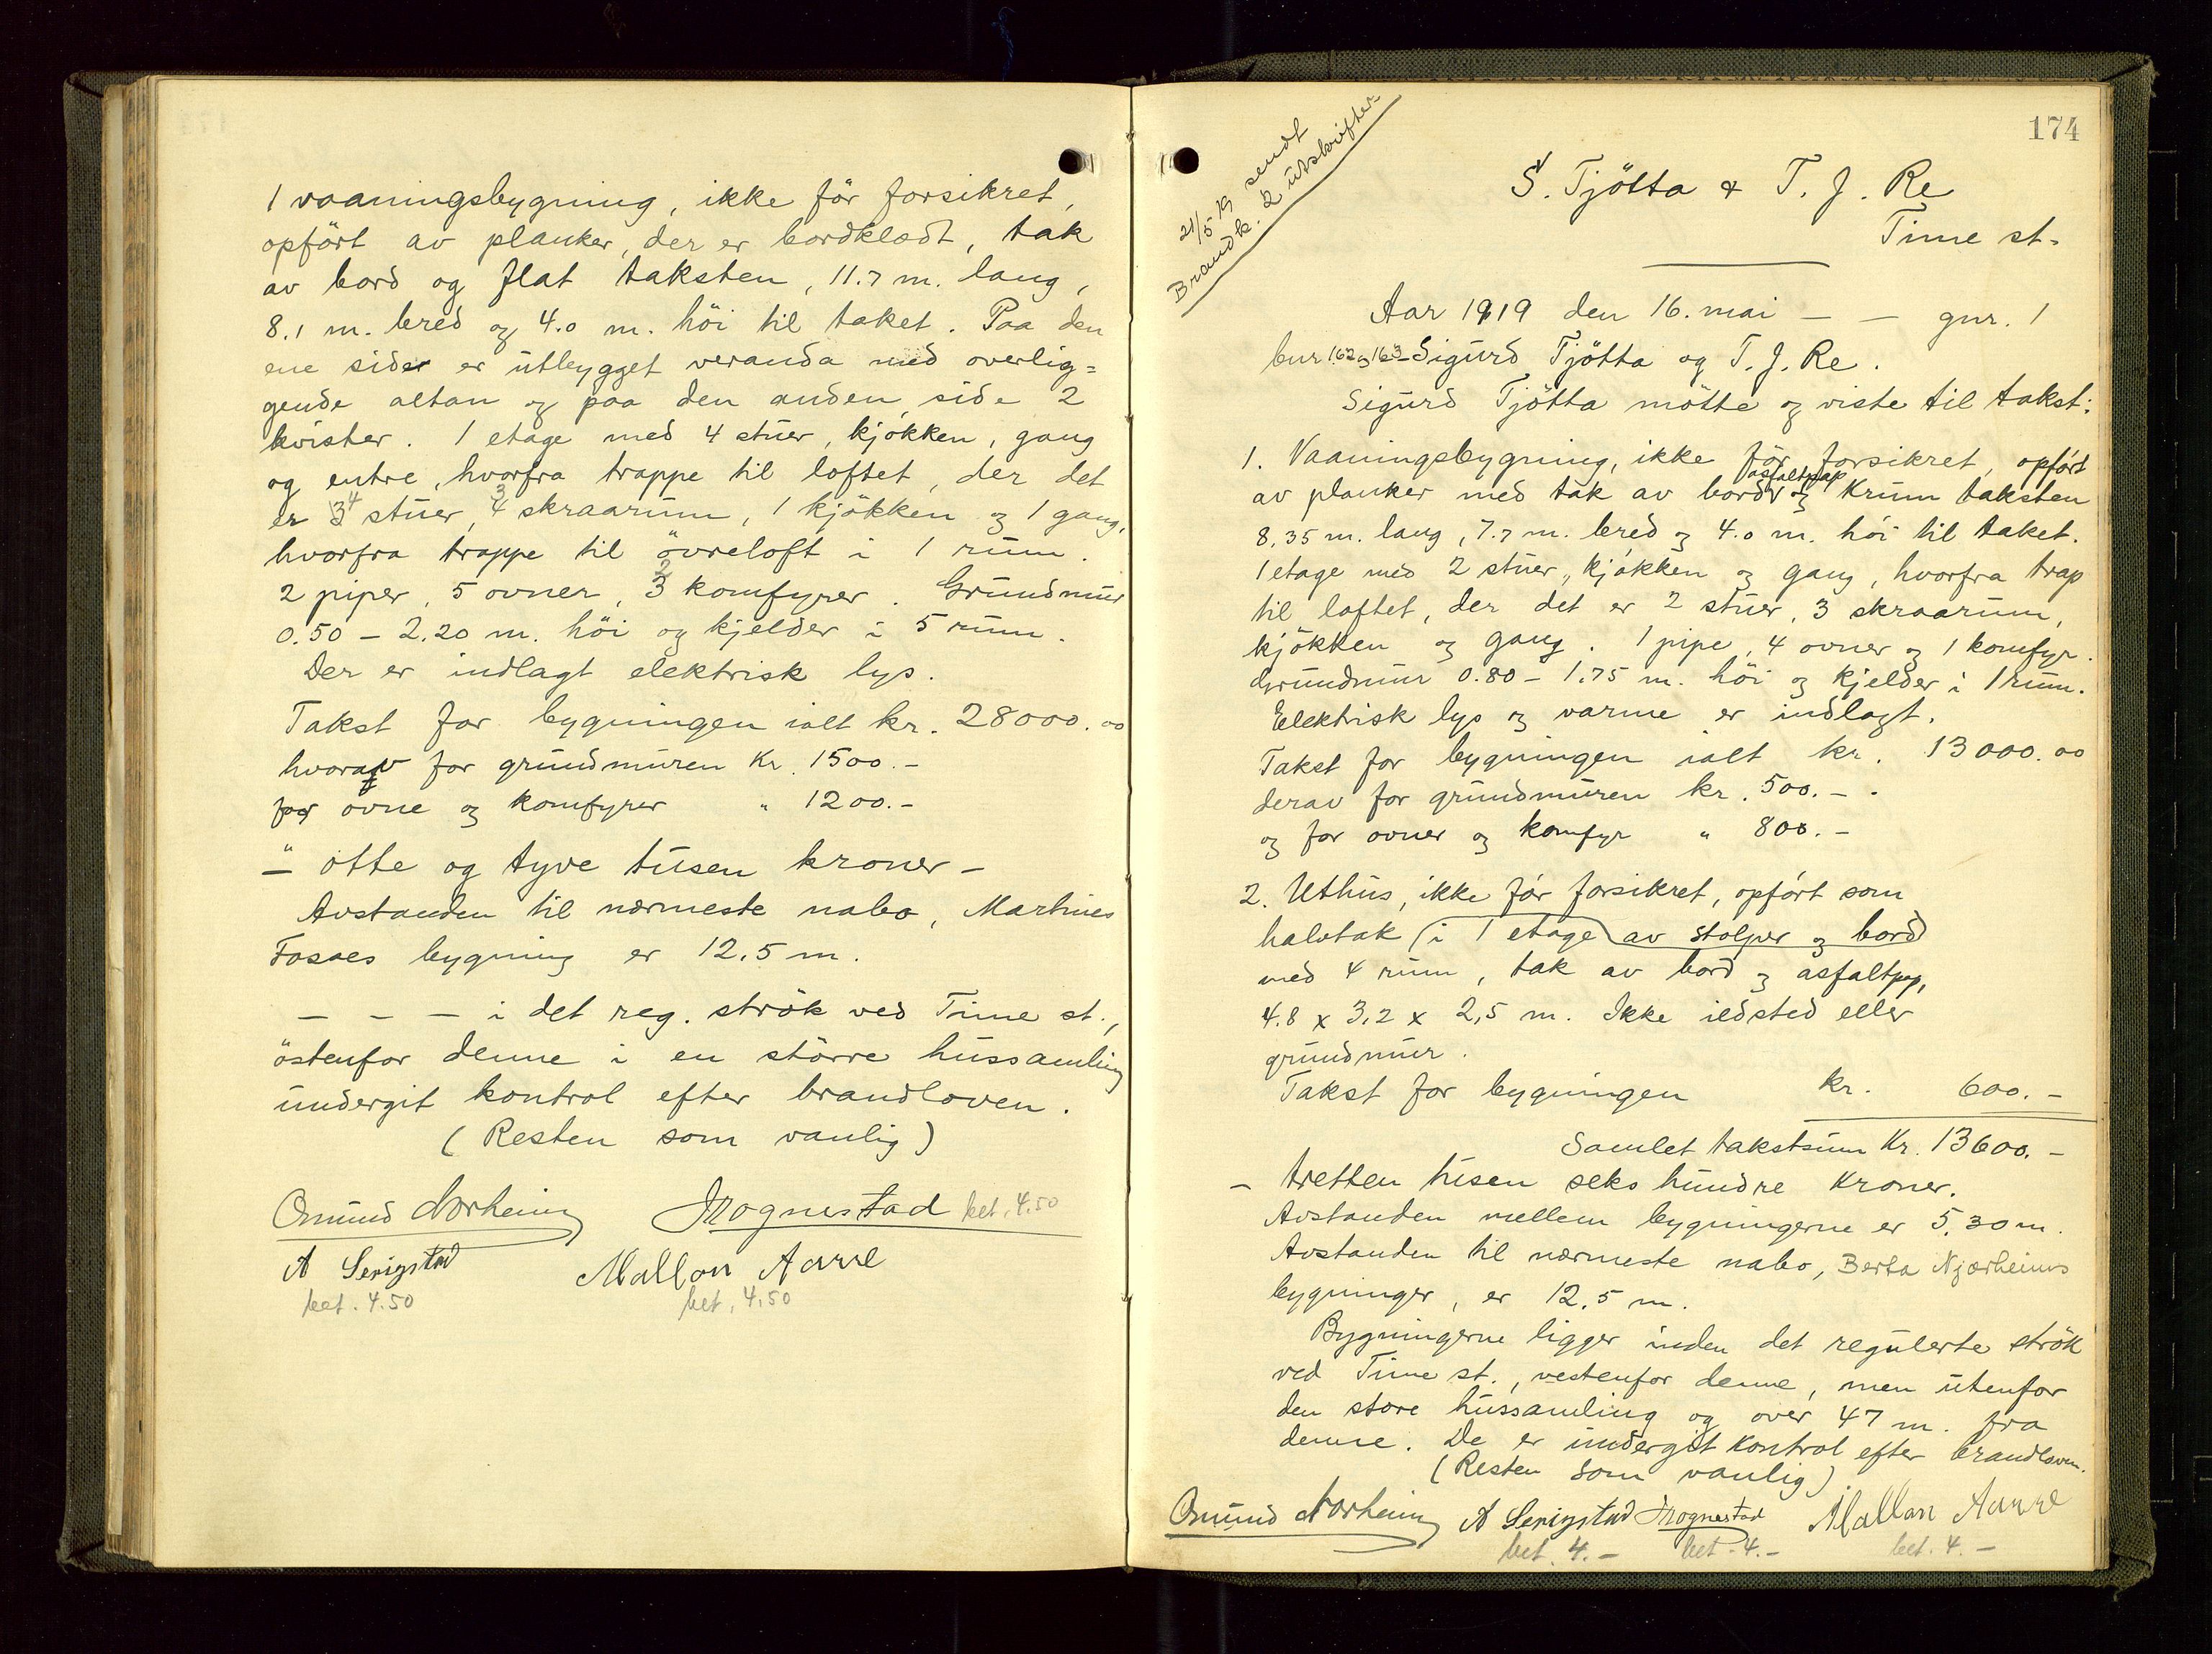 1 vaaningsbygning, ikke för forsikret,
opfört av planker, der er bordklædt, tak
av bord og flat taksten, 11.7 m. lang,
8.1 m. bred og 4.0 m. höi til taket. Paa den
ene side er utbygget veranda med overlig=
gende altan og paa den anden side 2
kvister. 1 etage med 4 stuer, kjökken, gang
og entre, hvorfra trappe til loftet, der det
er 4 stuer, 3 skraarum, 1 kjökken og 1 gang,
hvorfra trappe til övreloft i 1 rum.
2 piper, 5 ovner, 2 komfyrer. Grundmur
0.50 - 2.20 m. höi og kjelder i 5 rum.
Der er indlagt elektrisk lys.
Takst for bygningen ialt kr. 28000.00
hvorav for grundmuren Kr. 1500.-
for ovne og komfyrer " 1200.-
- otte og tyve tusen kroner -
Avstanden til nærmeste nabo, Martines
Fosaes bygning er 12.5 m.
- - - i det reg. strök ved Time st.,
östenfor denne i en större hussamling
undergit kontrol efter brandloven.
(Resten som vanlig)
Osmund Norheim Mognestad bet. 4.50
A Serigstad Mallon Aarre
bet. 4.50 bet. 4.50
174
21/5 19 sendt
Brandk. 2 utskrifter
S. Tjötta & T. J. Re
Time st.
Aar 1919 den 16. mai - - gnr. 1
bnr 162 og 163 - Sigurd Tjötta og T. J. Re.
Sigurd Tjötta mötte og viste til takst:
1. Vaaningsbygning, ikke för forsikret, opfört
av planker med tak av bord, asfaltpap og Krum taksten
8,35 m. lang, 7.7 m. bred og 4.0 m. höi til taket.
1 etage med 2 stuer, kjökken og gang, hvorfra trap
til loftet, der det er 2 stuer, 3 skraarum,
kjökken og gang. 1 pipe, 4 ovner og 1 komfyr.
Grundmur 0.80 - 1.75 m. höi og kjelder i 1 rum.
Elektrisk lys og varme er indlagt.
Takst for bygningen ialt kr. 13000.00
derav for grundmuren kr. 500.-
og for ovner og komfyr " 800.-
2. Uthus, ikke för forsikret, opfört som
halvtak (i 1 etage) av stolper og bord
med 4 rum, tak av bord og asfaltpap,
4.8 x 3.2 x 2,5 m. Ikke ildsted eller
grundmur.
Takst for bygningen kr. 600.-
Samlet takstsum Kr. 13600.-
- tretten tusen seks hundre Kroner.
Avstanden mellem bygningerne er 5.30 m.
Avstanden til nærmeste nabo, Berta Njærheims
bygninger, er 12.5 m.
Bygningerne ligger inden det regulerte strök
ved Time st., vestenfor denne, men utenfor
den store hussamling og over 47 m. fra
denne. De er undergit Kontrol efter brandloven.
(Resten som vanlig)
Osmund Norheim A Serigstad Mognestad Mallon Aarre
bet. 4.- bet. 4.- bet. 4.-